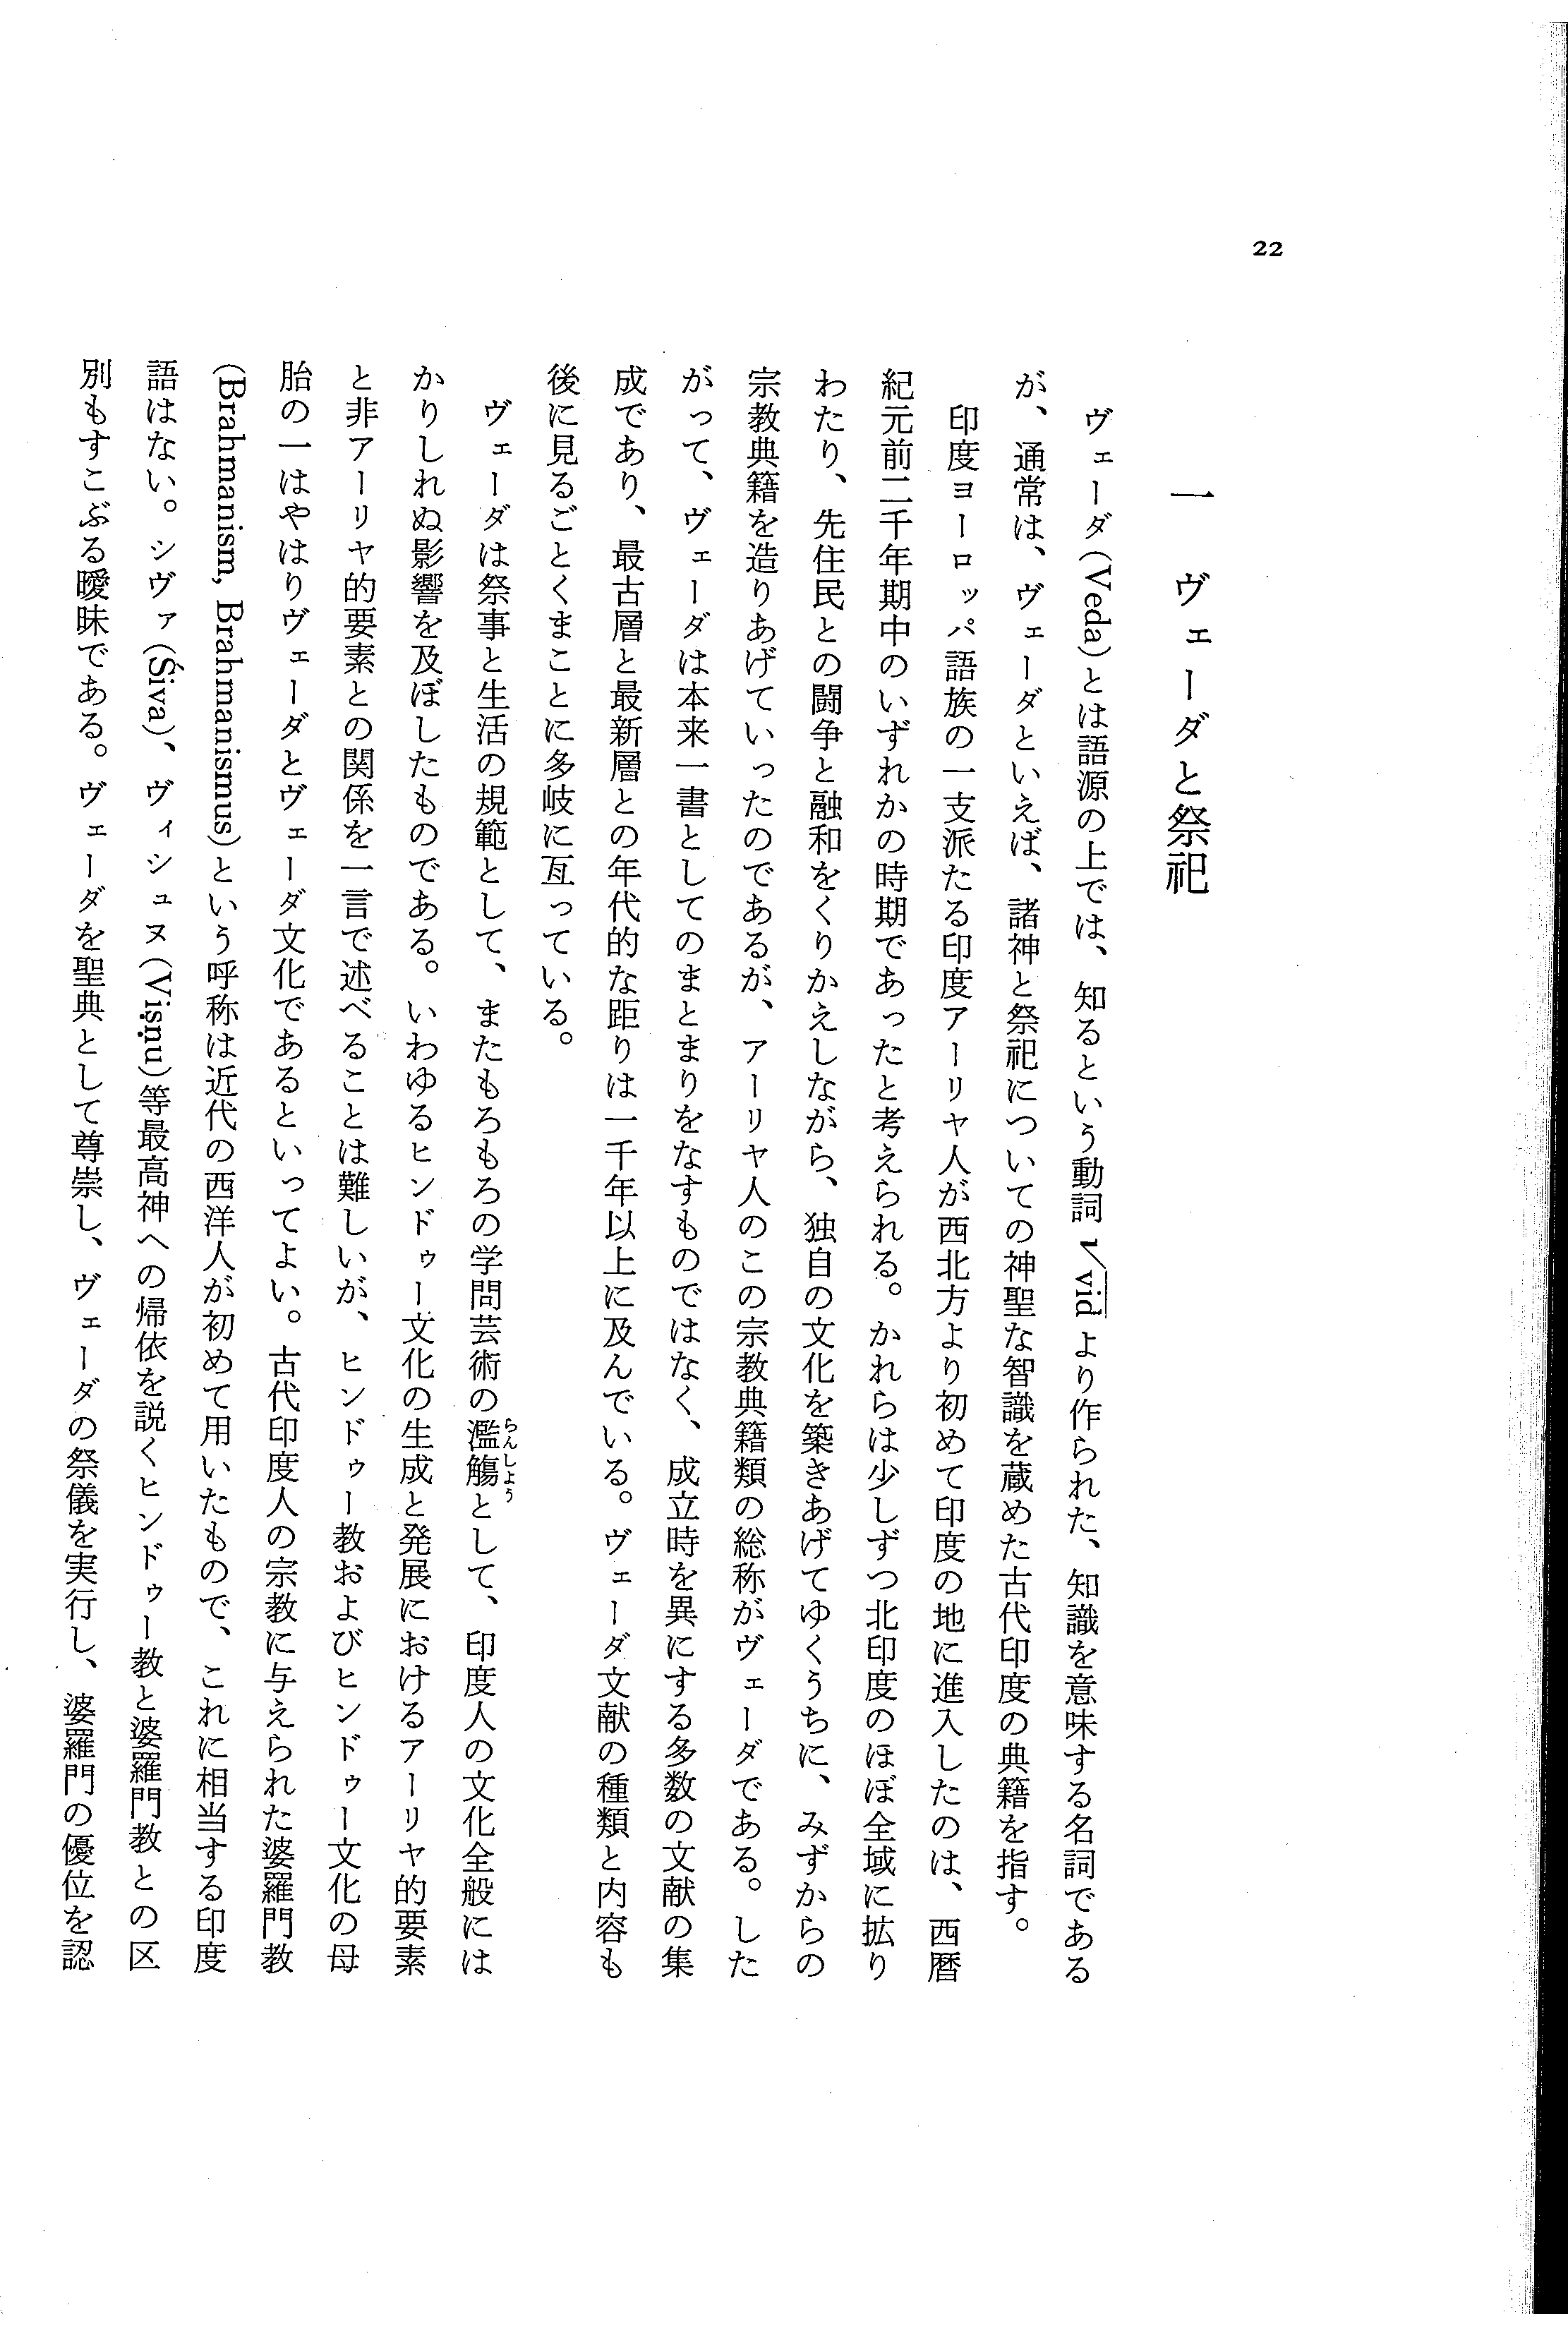 22
一 ヴェーダと祭祀
ヴェーダ(Veda)とは語源の上では、知るという動詞√vidより作られた、知識を意味する名詞である
が、通常は、ヴェーダといえば、諸神と祭祀についての神聖な智識を蔵めた古代印度の典籍を指す。
印度ヨーロッパ語族の一支派たる印度アーリヤ人が西北方より初めて印度の地に進入したのは、西暦
紀元前二千年期中のいずれかの時期であったと考えられる。かれらは少しずつ北印度のほぼ全域に拡り
わたり、先住民との闘争と融和をくりかえしながら、独自の文化を築きあげてゆくうちに、みずからの
宗教典籍を造りあげていったのであるが、アーリヤ人のこの宗教典籍類の総称がヴェーダである。した
がって、ヴェーダは本来一書としてのまとまりをなすものではなく、成立時を異にする多数の文献の集
成であり、最古層と最新層との年代的な距りは一千年以上に及んでいる。ヴェーダ文献の種類と内容も
後に見るごとくまことに多岐に亙っている。
ヴェーダは祭事と生活の規範として、またもろもろの学問芸術の濫觴らんしょうとして、印度人の文化全般には
かりしれぬ影響を及ぼしたものである。いわゆるヒンドゥー文化の生成と発展におけるアーリヤ的要素
と非アーリヤ的要素との関係を一言で述べることは難しいが、ヒンドゥー教およびヒンドゥー文化の母
胎の一はやはりヴェーダとヴェーダ文化であるといってよい。古代印度人の宗教に与えられた婆羅門教
(Brahmanism, Brahmanismus)という呼称は近代の西洋人が初めて用いたもので、これに相当する印度
語はない。シヴァ(Śiva)、ヴィシュヌ(Viṣṇu)等最高神への帰依を説くヒンドゥー教と婆羅門教との区
別もすこぶる曖昧である。ヴェーダを聖典として尊崇し、ヴェーダの祭儀を実行し、婆羅門の優位を認